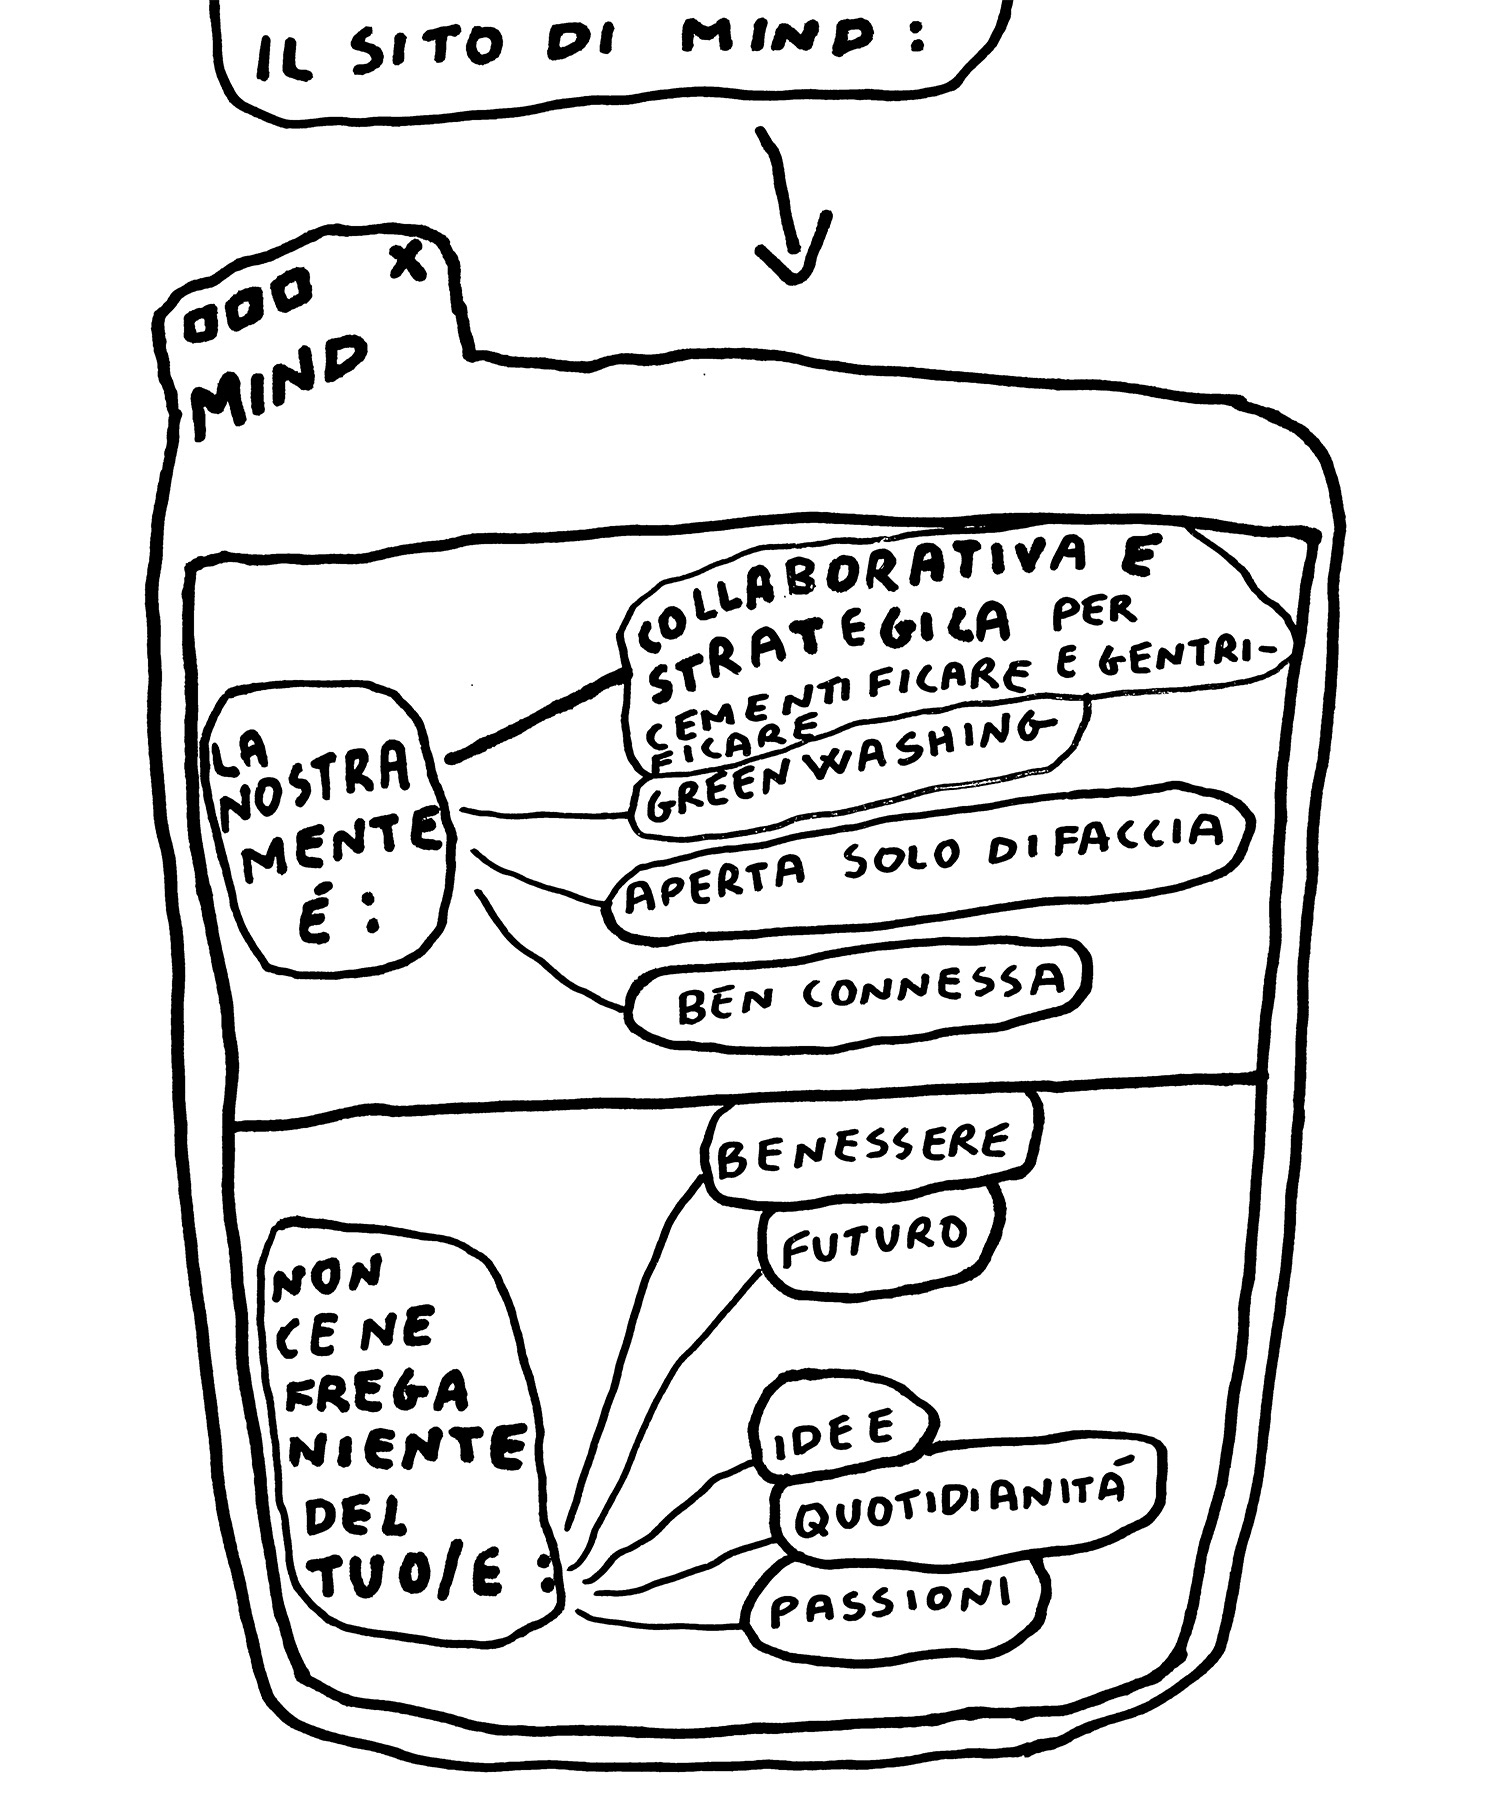 IL SITO DI MIND :
X
MIND
LA
NOSTRA
MENTE
É :
COLLABORATIVA E
STRATEGICA PER
CEMENTIFICARE E GENTRI-
FICARE
GREENWASHING
APERTA SOLO DI FACCIA
BEN CONNESSA
NON
CE NE
FREGA
NIENTE
DEL
TUO/E :
BENESSERE
FUTURO
IDEE
QUOTIDIANITÁ
PASSIONI